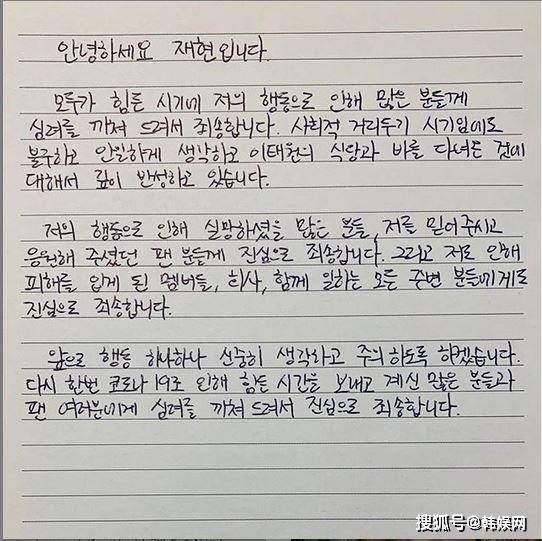 안녕하세요 재현입니다.
모두가 힘든 시기에 저의 행동으로 인해 많은 분들께
심려를 끼쳐 드려서 죄송합니다. 사회적 거리두기 시기임에도
불구하고 안일하게 생각하고 이태원의 식당과 바를 다녀온 것에
대해서 깊이 반성하고 있습니다.
저의 행동으로 인해 실망하셨을 많은 분들, 저를 믿어주시고
응원해 주셨던 팬 분들께 진심으로 죄송합니다. 그리고 저로 인해
피해를 입게 된 멤버들, 회사, 함께 일하는 모든 주변 분들에게도
진심으로 죄송합니다.
앞으로 행동 하나하나 신중히 생각하고 주의하도록 하겠습니다.
다시 한번 코로나 19로 인해 힘든 시간을 보내고 계신 많은 분들과
팬 여러분에게 심려를 끼쳐 드려서 진심으로 죄송합니다.
搜狐号@韩娱网